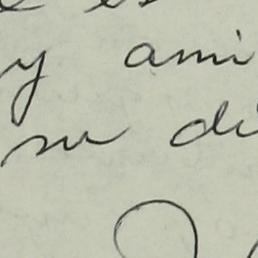 es
y ami
su di